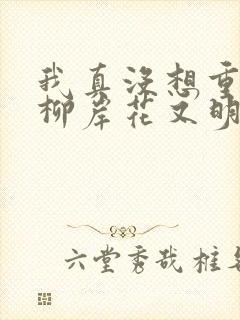 我真没想重
柳岸花又明
六堂秀哉框